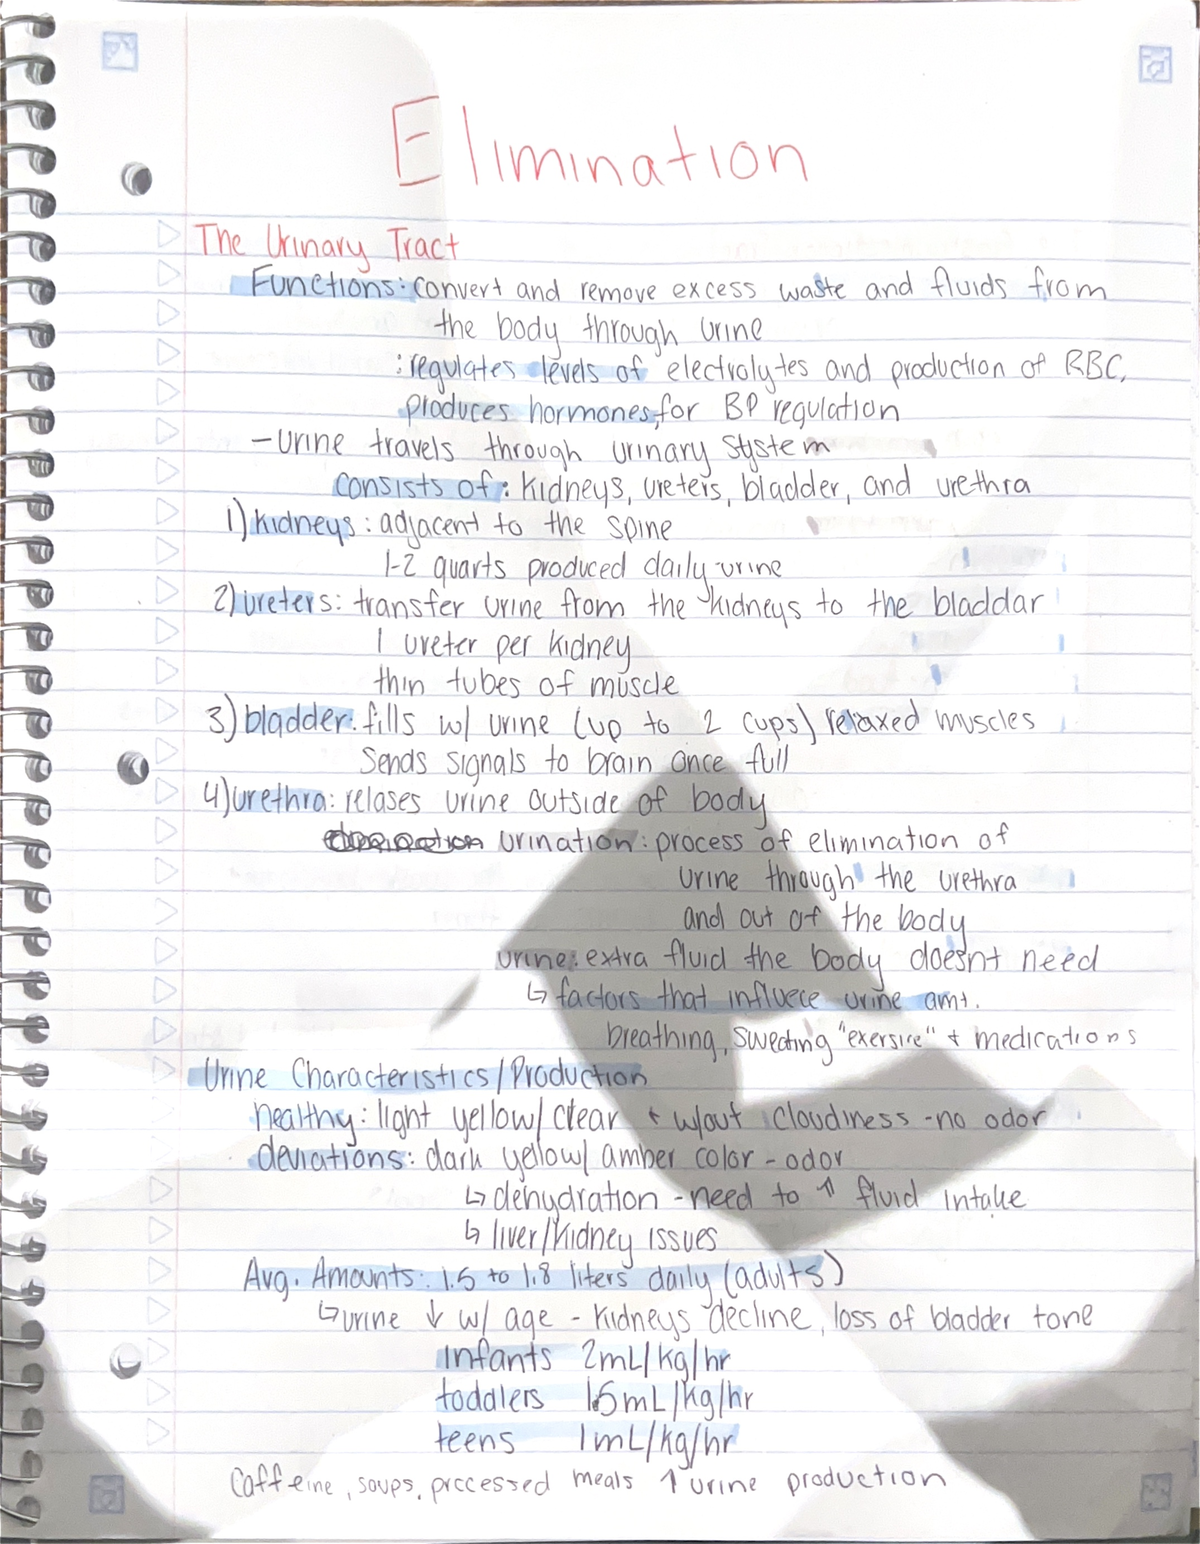 Elimination
The Urinary Tract
Functions: convert and remove excess waste and fluids from
the body through urine
: regulates levels of electrolytes and production of RBC,
produces hormones, for BP regulation
- urine travels through urinary system
consists of: kidneys, ureters, bladder, and urethra
1) kidneys: adjacent to the spine
1-2 quarts produced daily-urine
2) ureters: transfer urine from the kidneys to the bladdar
1 ureter per kidney
thin tubes of muscle
3) bladder: fills w/ urine (up to 2 cups) relaxed muscles
Sends signals to brain once full
4) urethra: relases urine outside of body
urination: process of elimination of
urine through the urethra
and out of the body
urine: extra fluid the body doesnt need
↳ factors that influece urine amt.
breathing, sweating "exersire" + medications
Urine Characteristics/Production
healthy: light yellow/clear + w/out cloudiness - no odor
deviations: dark yellow/ amber color - odor
↳ dehydration - need to ↑ fluid intake
↳ liver/kidney issues
Avg. Amounts: 1.5 to 1.8 liters daily (adults)
↳ urine ↓ w/ age - kidneys decline, loss of bladder tone
infants 2mL/kg/hr
toddlers 1.5mL/kg/hr
teens 1mL/kg/hr
Caffeine, soups, prccessed meals ↑ urine production